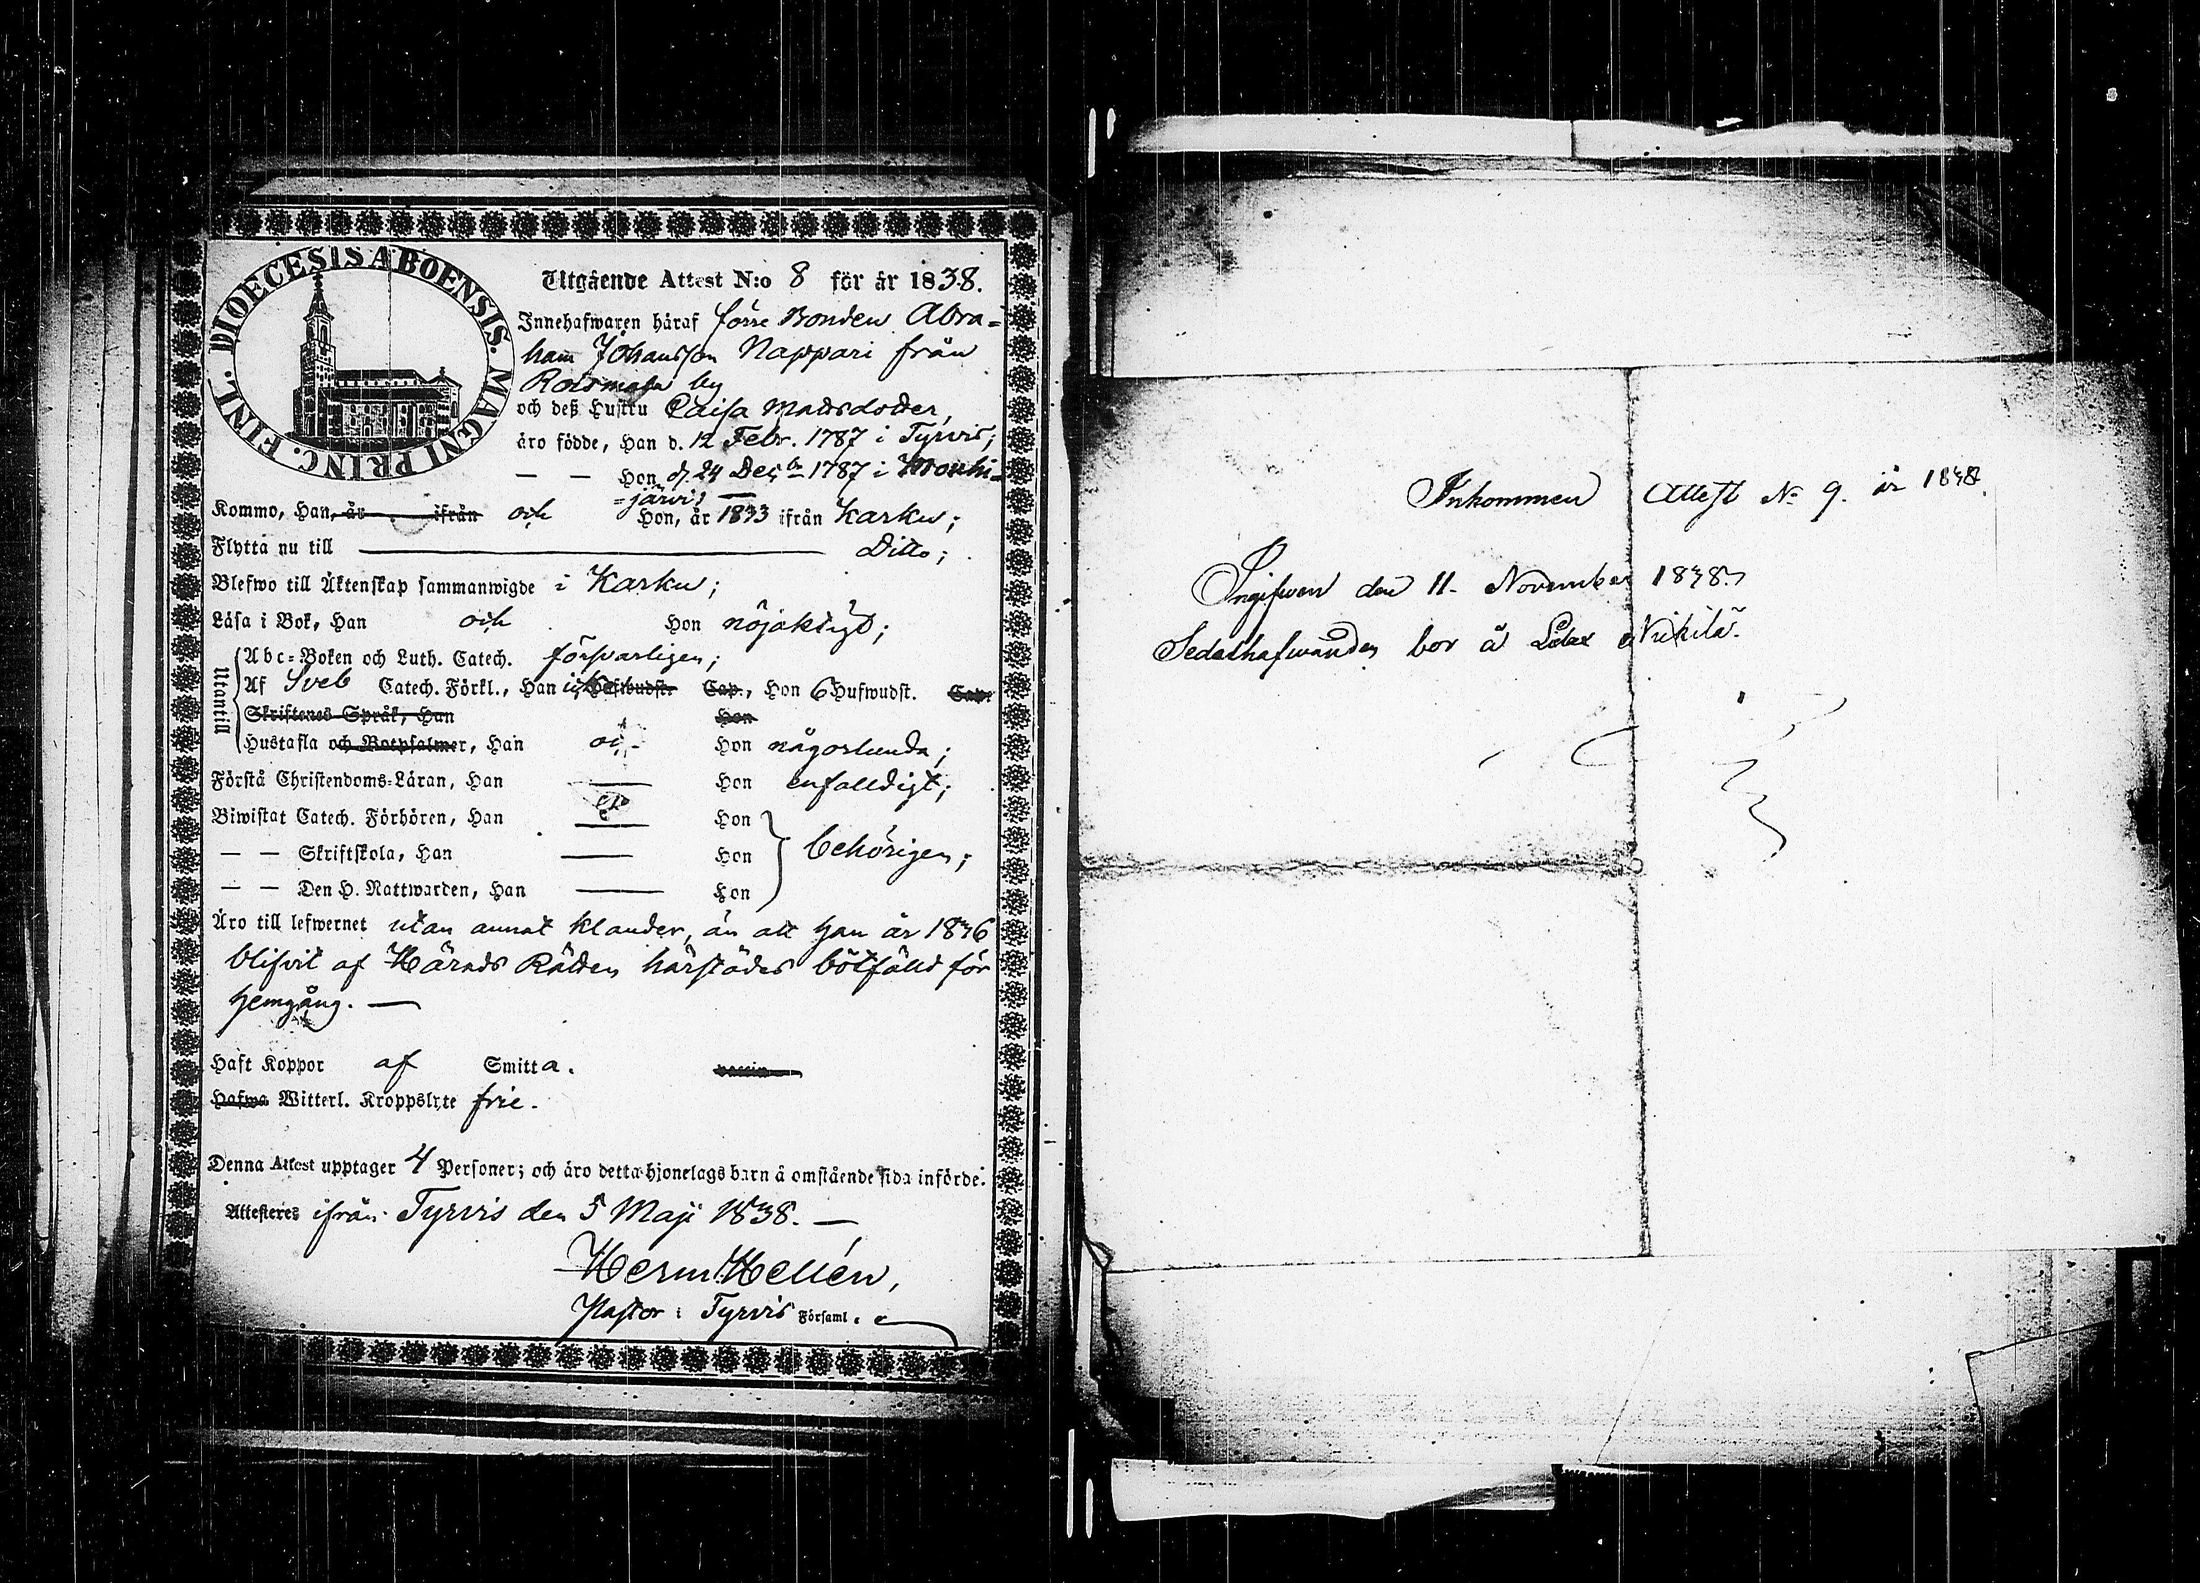 DIOECESIS ABOENSIS. MAGNI PRINC. FINL.
Utgående Attest N:o 8 för år 1838.
Innehafwaren häraf förre Bonden Abra=
ham Johansson Nappari från
Roismala by
och deß Hustru Caisa Madsdoder,
äro födde, Han d. 12 Febr. 1787 i Tyrvis;
— — Hon d. 24 Decbr 1787 i Mouhi=
=järvis —
Kommo, Han, år ifrån och Hon, år 1833 ifrån Karku;
Flytta nu till Ditto;
Blefwo till Äktenskap sammanwigde i Karku;
Läsa i Bok, Han och Hon nöjaktigt;
Utantill
Abc=Boken och Luth. Catech. försvarligen;
Af Sveb Catech. Förkl., Han Hufwudst. Cap., Hon 6 Hufwudst. Cap.
Skriftenes Språk, Han Hon
Hustafla och Botpsalmer, Han och Hon någorlunda;
Förstå Christendoms=Läran, Han — Hon enfalldigt;
Biwistat Catech. Förhören, Han — Hon
— — Skriftskola, Han — Hon behörigen;
— — Den H. Nattwarden, Han — Hon
Äro till lefwernet utan annat klander, än att han år 1836
blifvit af Härads Rätten härstädes bötfälld för
hemgång. —
Haft Koppor af Smitta. vaccin
Hafwa Witterl. Kroppslyte frie.
Denna Attest upptager 4 Personer; och äro detta hjonelags barn å omstående sida införde.
Attesteres ifrån Tyrvis den 5 Maji 1838. —
Herm. Hellén,
Pastor i Tyrvis Församl.
Inkommen Attest No 9. år 1838.
Ingifven den 11. November 1838.
Sedelhafwanden bor å Nikilä.